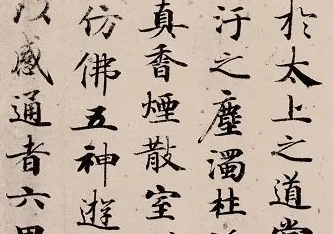 於太上之道當
汙之塵濁杜
真香煙散室
仿佛五神遊
以感通者六甲